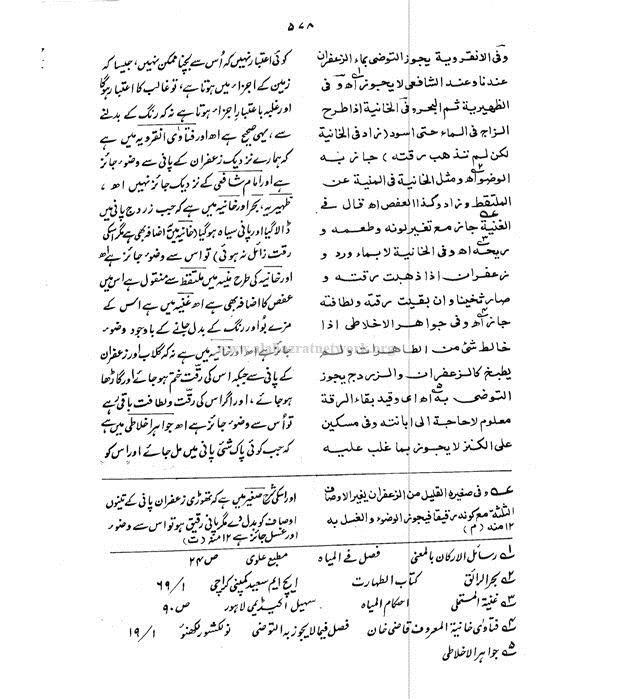 ۵۷۸
وفی الانقرویة یجوز التوضی بماء الزعفران
عندنا وعند الشافعی لایجوز اھ و فی
الظهیریة ثم البحر و فی الخانیة اذا طرح
الزاج فی الماء حتی اسود (زاد فی الخانیة
لکن لم تذهب رقته) جاز به
الوضو اھ و مثل الخانیة فی المنیة عن
الملتقط و زاد و کذا العفص اھ قال فی
الغنیة جاز مع تغیر لونه و طعمه و
ریحه اھ و فی الخانیة لا بماء ورد و
زعفران اذا ذهبت رقته و
صار ثخینا و ان بقیت رقته ولطافته
جاز اھ و فی جواهر الاخلاطی اذا
خالط شئ من الطاهرات ولم
یطبخ کالزعفران والزردج یجوز
التوضی به اھ ای وقید بقاء الرقة
معلوم لاحاجة الی ابانته وفی مسکین
علی الکنز لایجوز بما غلب علیه
کوئی اعتبار نہیں کہ اُس سے بچنا ممکن نہیں، جیسا کہ
زمین کے اجزاء میں ہوتا ہے، تو غالب کا اعتبار ہوگا
اور غلبہ باعتبار اجزاء ہوتا ہے نہ کہ رنگ کے بدلنے
سے، یہی صحیح ہے اھ اور فتاوٰی انقرویہ میں ہے
کہ ہمارے نزدیک زعفران کے پانی سے وضو، جائز
ہے اور امام شافعی کے نزدیک جائز نہیں اھ،
ظہیریہ، بحر اور خانیہ میں ہے کہ جب زردج پانی میں
ڈالا گیا اور پانی سیاہ ہوگیا (خانیہ میں اضافہ بھی ہے مگر اسکی
رقت زائل نہ ہوئی) تو اس سے وضو، جائز ہے اھ
اور خانیہ کی طرح منیہ میں ملتقط سے منقول ہے اس میں
عفص کا اضافہ بھی ہے اھ غنیہ میں ہے اس کے
مزے بو اور رنگ کے بدل جانے کے باوجود وضو،
جائز ہے اھ اور خانیہ میں ہے نہ کہ گلاب اور زعفران
کے پانی سے جبکہ اس کی رقت ختم ہوجائے اور گاڑھا
ہوجائے، اور اگر اس کی رقت و لطافت باقی رہے
تو اُس سے وضو، جائز ہے اھ جواہر اخلاطی میں ہے
کہ جب کوئی پاک شئی پانی میں مل جائے اور اس کو
عـه وفی صغیره القلیل من الزعفران یغیر الاوصاف
الثلثة مع کونه رقیقا فیجوز الوضوء والغسل به
۱۲ منه (م)
اور اسکی شرح صغیر میں ہے کہ تھوڑی زعفران پانی کے تینوں
اوصاف کو بدل دے مگر پانی رقیق ہو تو اس سے وضو،
اور غسل جائز ہے ۱۲ منہ (ت)
۱ رسائل الارکان بالمعنی فصل فی المیاہ مطبع علوی ص ۲۴
۲ بحر الرائق کتاب الطہارت ایچ ایم سعید کمپنی کراچی ۱/ ۶۹
۳ غنیۃ المستملی احکام المیاہ سہیل اکیڈیمی لاہور ص ۹۰
۴ فتاوٰی خانیۃ المعروف قاضی خان فصل فیما لایجوز بہ التوضی نولکشور لکھنؤ ۱/ ۱۹
۵ جواہر الاخلاطی